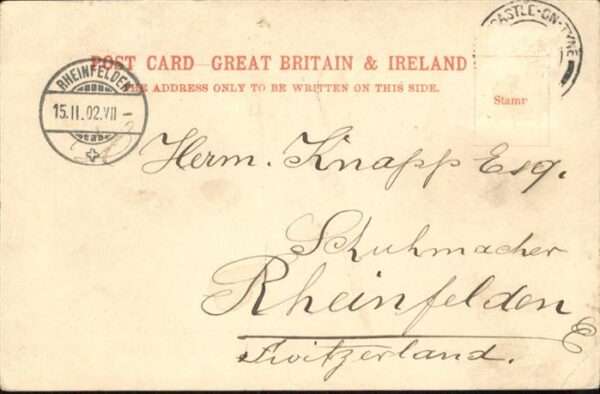 POST CARD—GREAT BRITAIN & IRELAND
THE ADDRESS ONLY TO BE WRITTEN ON THIS SIDE.
CASTLE-ON-TYNE
Stamp
RHEINFELDEN
15.II.02.VII-
Herm. Knapp Esq.
Schuhmacher
Rheinfelden
Switzerland.